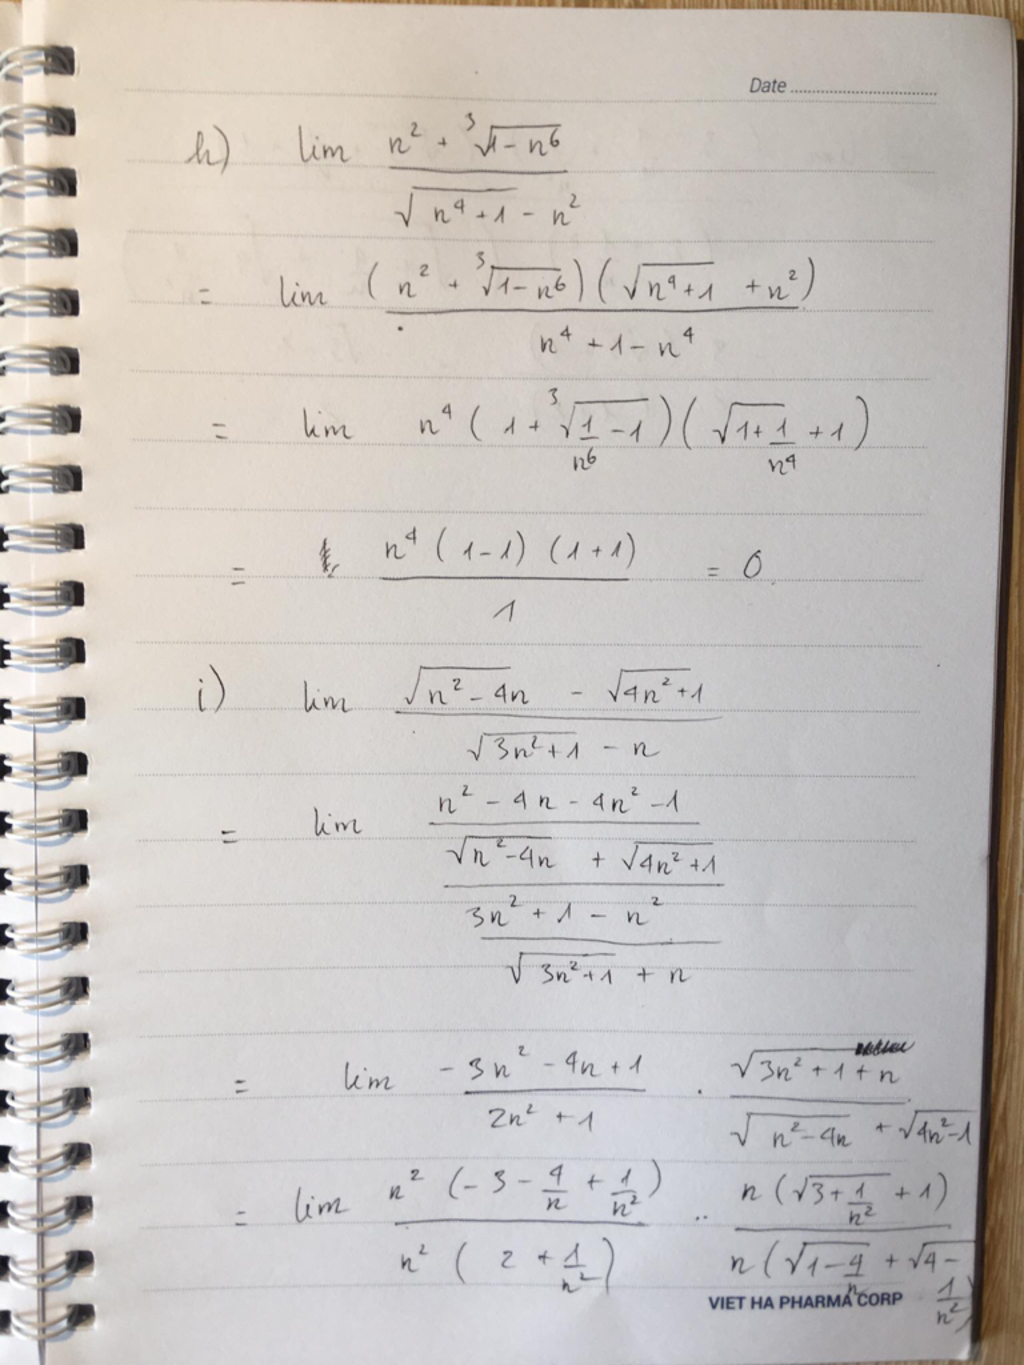 Date
h) lim (n² + ³√(1-n⁶)) / (√(n⁴+1) - n²)
= lim (n² + ³√(1-n⁶)) (√(n⁴+1) + n²) / (n⁴ + 1 - n⁴)
= lim n⁴ (1 + ³√(1/n⁶ - 1)) (√(1 + 1/n⁴) + 1)
= n⁴ (1-1) (1+1) / 1 = 0.
i) lim (√(n² - 4n) - √(4n²+1)) / (√(3n²+1) - n)
= lim ((n² - 4n - 4n² - 1) / (√(n²-4n) + √(4n²+1))) / ((3n² + 1 - n²) / (√(3n²+1) + n))
= lim (-3n² - 4n + 1) / (2n² + 1) . (√(3n² + 1) + n) / (√(n²-4n) + √(4n²-1))
= lim n² (-3 - 4/n + 1/n²) / n² (2 + 1/n²) .. n (√(3 + 1/n²) + 1) / n (√(1 - 4/n) + √(4 - 1/n²))
VIET HA PHARMA CORP